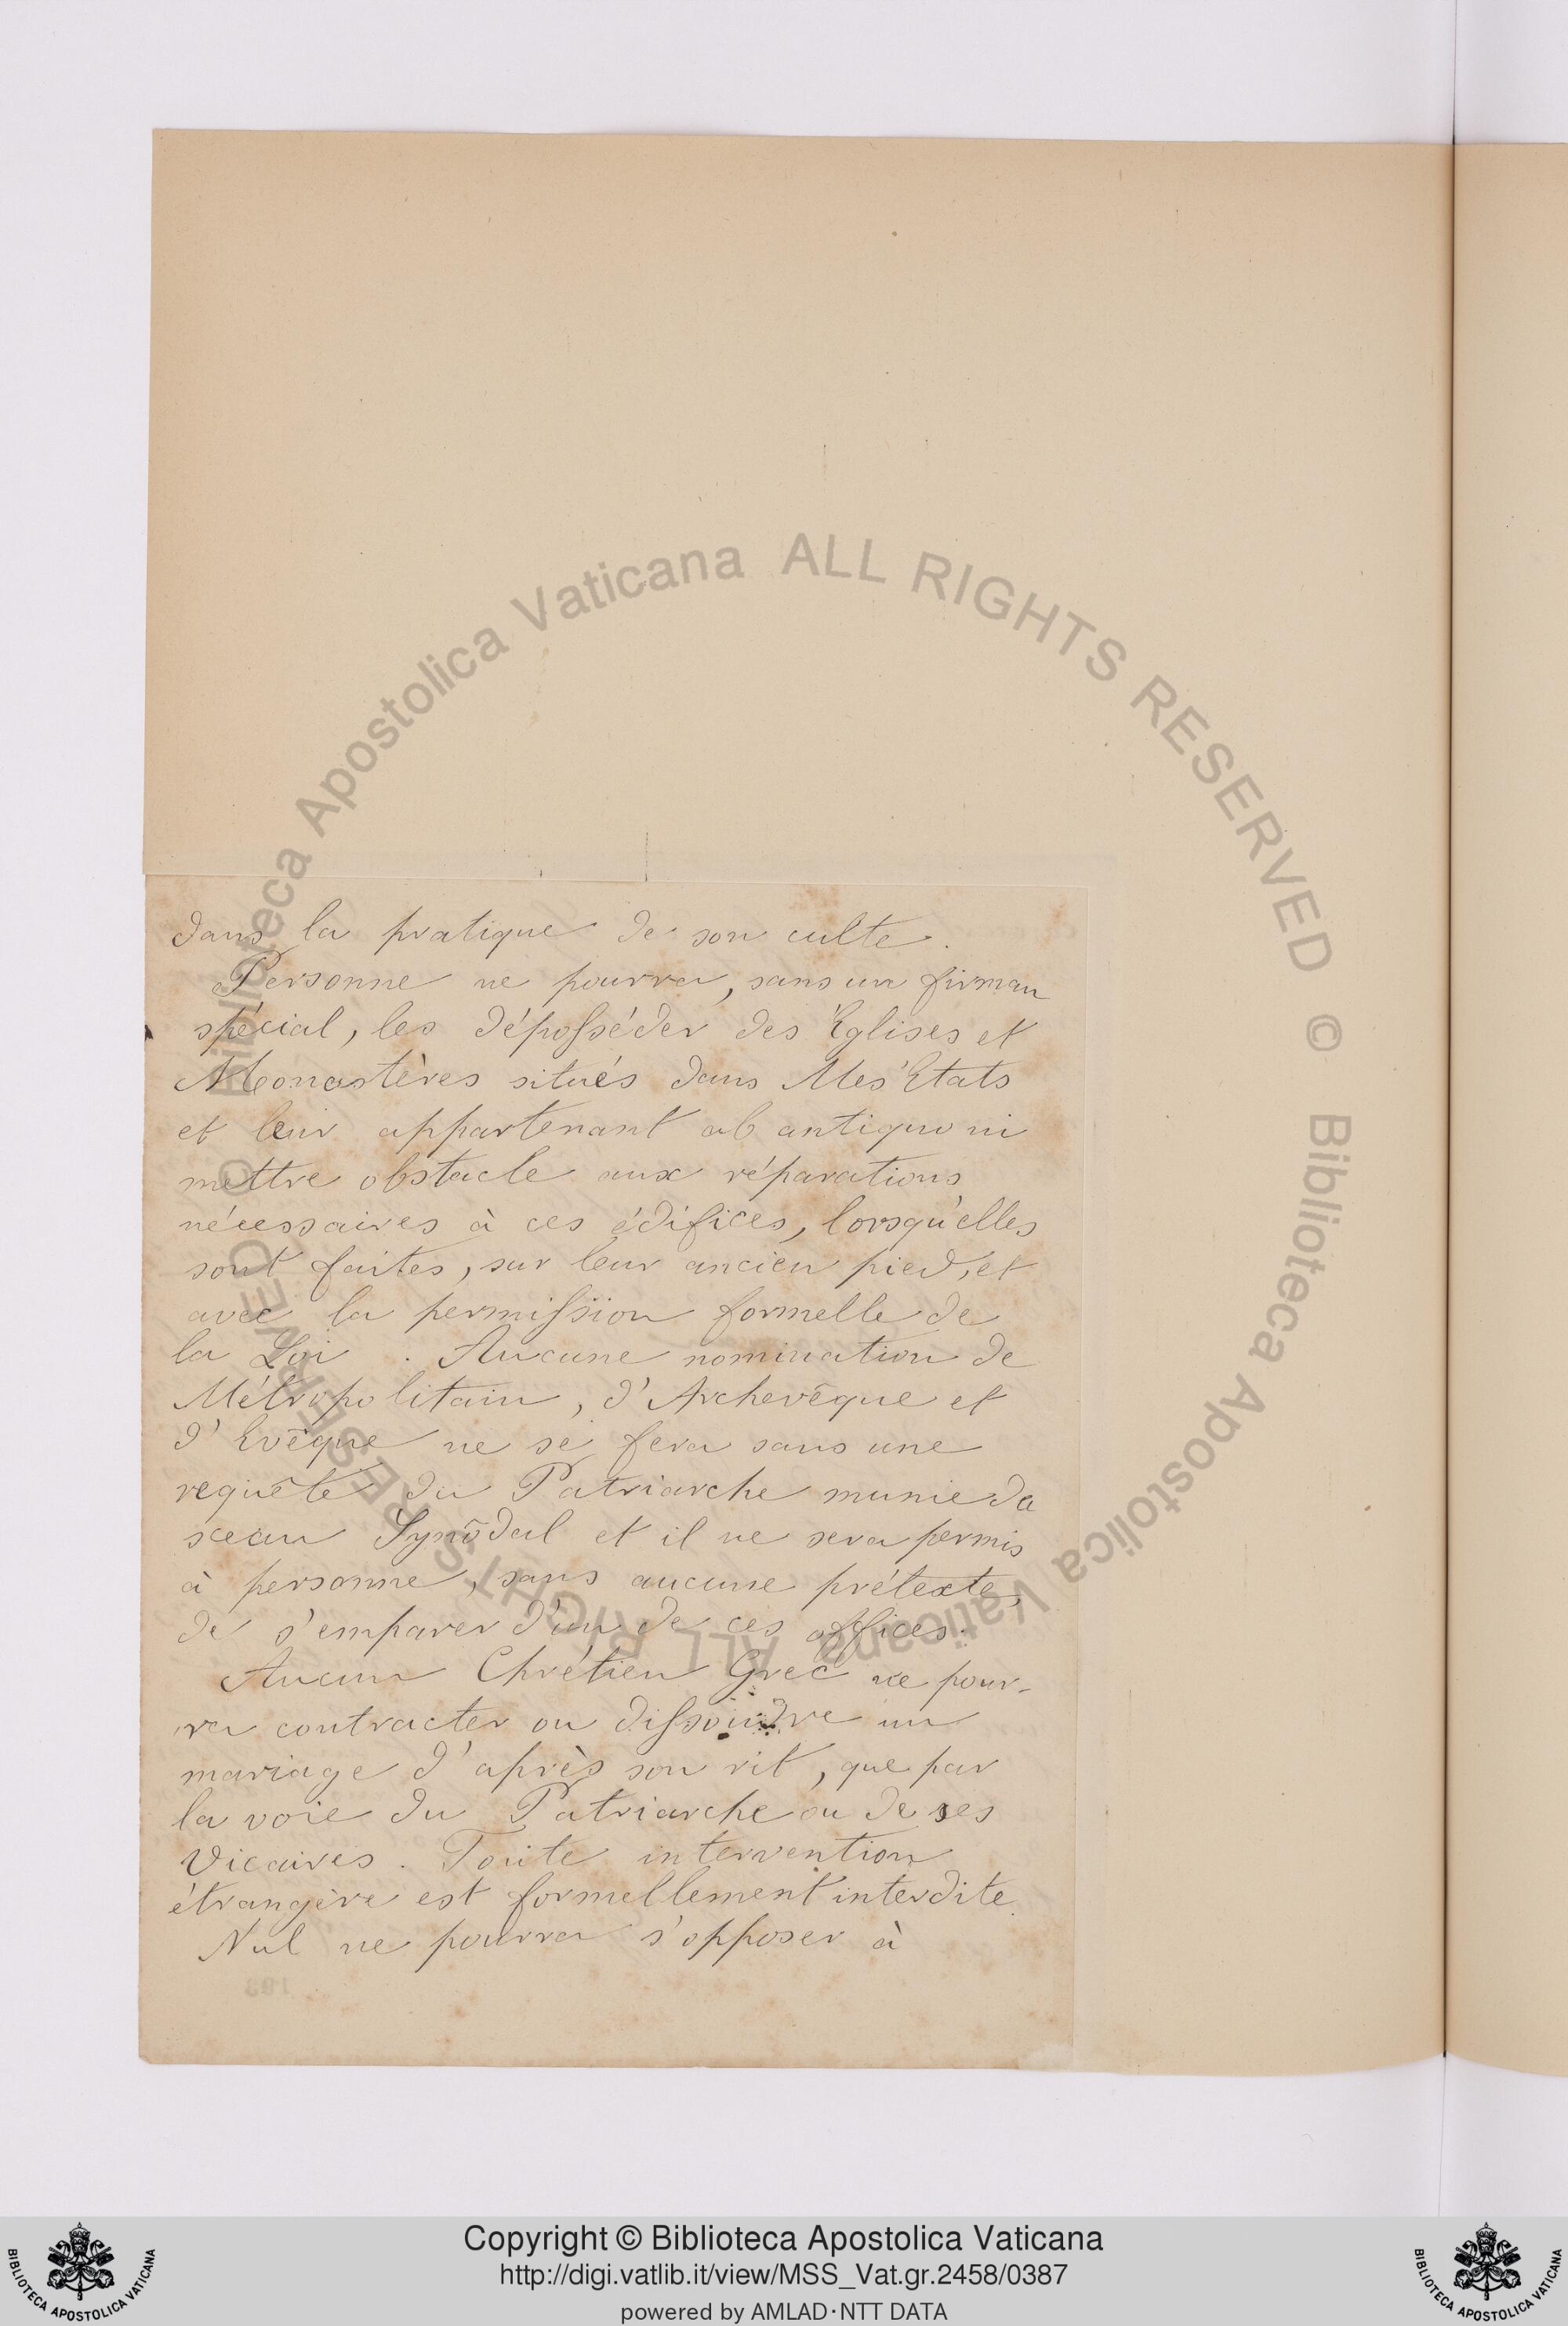 dans la pratique de son culte.
Personne ne pourra, sans un firman
spécial, les déposséder des Eglises et
Monastères situés dans Mes Etats
et leur appartenant ab antiquo ni
mettre obstacle aux réparations
nécessaires à ces édifices, lorsqu'elles
sont faites, sur leur ancien pied, et
avec la permission formelle de
la Loi. Aucune nomination de
Métropolitain, d'Archevêque et
d'Evêque ne se fera sans une
requête du Patriarche munie du
sceau Synodal et il ne sera permis
à personne, sans aucune prétexte,
de s'emparer d'un de ces offices.
Aucun Chrétien Grec ne pour-
ra contracter ou dissoudre un
mariage d'après son rit, que par
la voie du Patriarche ou de ses
Vicaires. Toute intervention
étrangère est formellement interdite.
Nul ne pourra s'opposer à
© Biblioteca Apostolica Vaticana ALL RIGHTS RESERVED
© Biblioteca Apostolica Vaticana ALL RIGHTS RESERVED
Copyright © Biblioteca Apostolica Vaticana
http://digi.vatlib.it/view/MSS_Vat.gr.2458/0387
powered by AMLAD·NTT DATA
BIBLIOTECA APOSTOLICA VATICANA
BIBLIOTECA APOSTOLICA VATICANA